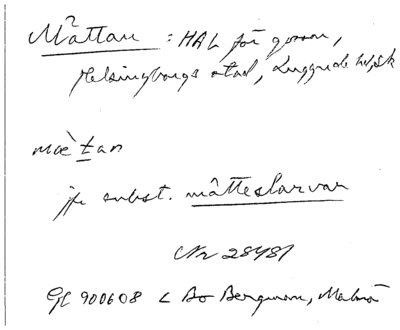 Måttan : HAL för gosson,
Helsingborgs stad, Luggude hd, Sk
mæ̀tan
jfr subst. måtteslarvar
Nr 28481
GC 900608 < Bo Bergman, Malmö